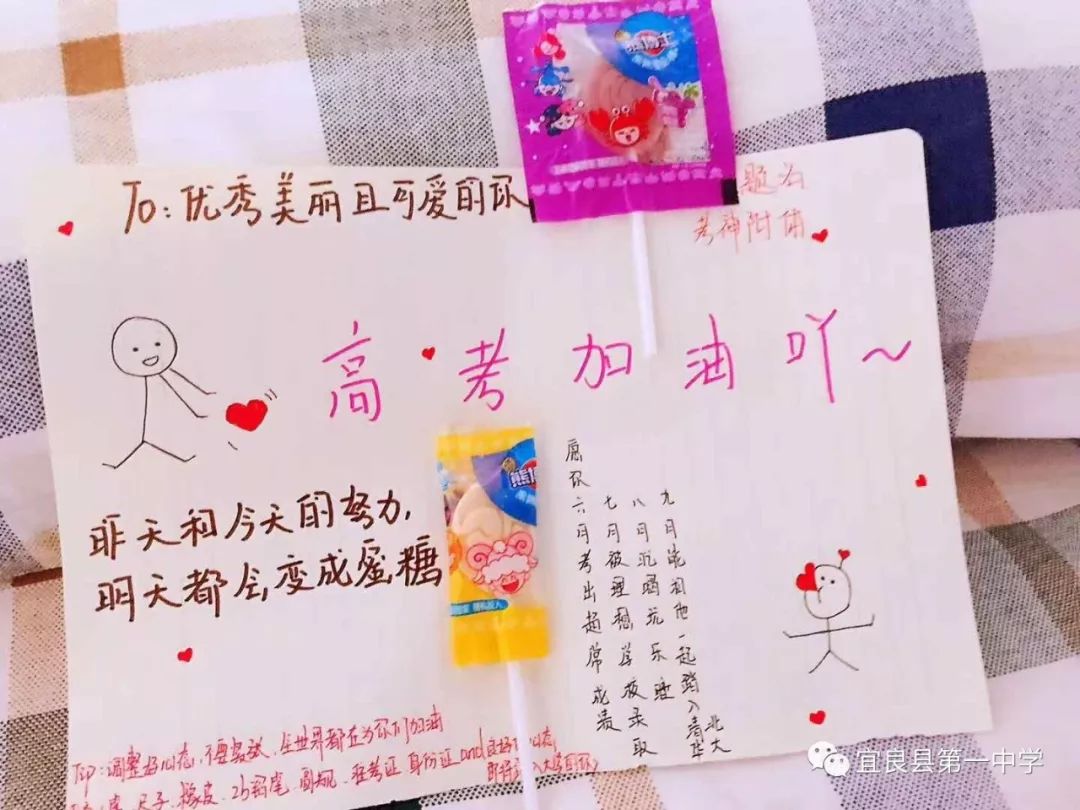 熊博士
To: 优秀美丽且可爱的你
题名
考神附体
高考加油吖~
昨天和今天的努力,
明天都会变成蜜糖
熊博
愿你
六月考出超常成绩
七月被理想学校录取
八月沉睡玩乐
九月能和他一起踏入清华
北大
Tip: 调整好心态,不要紧张,全世界都在为你们加油
尺子、橡皮、2b铅笔、圆规、准考证 身份证 and 良好的心态
即将入大学的你
宜良县第一中学